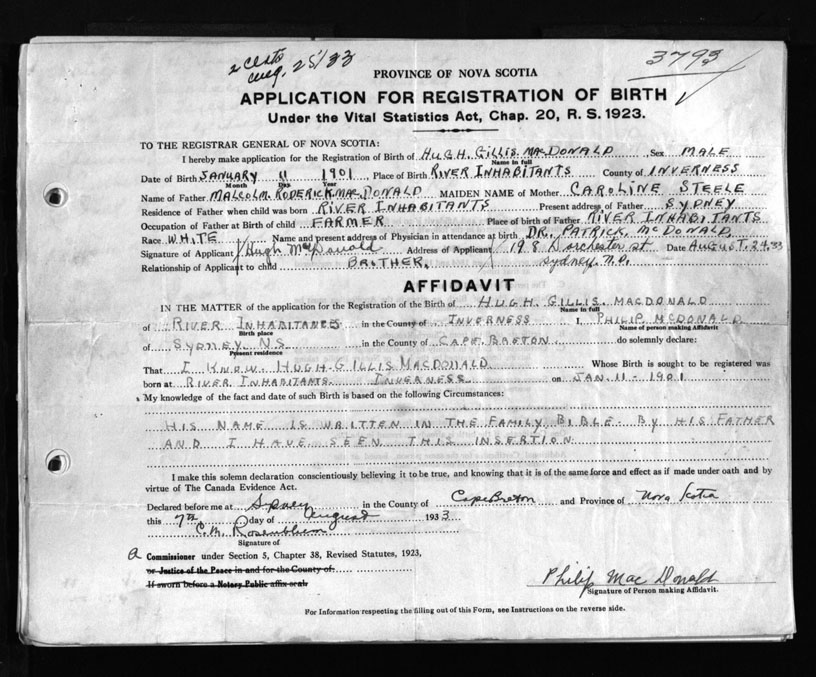 2 Certs 3793
Aug. 25/33
PROVINCE OF NOVA SCOTIA
APPLICATION FOR REGISTRATION OF BIRTH
Under the Vital Statistics Act, Chap. 20, R. S. 1923.
TO THE REGISTRAR GENERAL OF NOVA SCOTIA:
I hereby make application for the Registration of Birth of HUGH. GILLIS. MACDONALD Sex MALE
Name in full
Date of Birth JANUARY 11 1901 Place of Birth RIVER INHABITANTS County of INVERNESS
Month Day Year
Name of Father MALCOLM. RODERICK. MACDONALD MAIDEN NAME of Mother CAROLINE STEELE
Residence of Father when child was born RIVER INHABITANTS Present address of Father SYDNEY
Occupation of Father at Birth of child FARMER Place of birth of Father RIVER INHABITANTS
Race WHITE Name and present address of Physician in attendance at birth DR. PATRICK. MCDONALD
Signature of Applicant Hugh McDonald Address of Applicant 198 Dorchester st Date AUGUST. 24. 33
Relationship of Applicant to child BROTHER. Sydney. N.S.
AFFIDAVIT
IN THE MATTER of the application for the Registration of the Birth of HUGH. GILLIS. MACDONALD
Name in full
of RIVER INHABITANTS in the County of INVERNESS I, PHILIP MCDONALD
Birth place Name of person making Affidavit
of SYDNEY N.S in the County of CAPE. BRETON. do solemnly declare:
Present residence
That I KNOW. HUGH. GILLIS MACDONALD Whose Birth is sought to be registered was
born at RIVER INHABITANTS. INVERNESS on JAN. 11 - 1901
My knowledge of the fact and date of such Birth is based on the following Circumstances:
HIS NAME IS WRITTEN IN THE FAMILY BIBLE. BY HIS FATHER
AND I HAVE SEEN THIS INSERTION
I make this solemn declaration conscientiously believing it to be true, and knowing that it is of the same force and effect as if made under oath and by
virtue of The Canada Evidence Act.
Declared before me at Sydney in the County of Cape Breton and Province of Nova Scotia
this 7th day of August 1933
C. M. Rosenblum
Signature of
a Commissioner under Section 5, Chapter 38, Revised Statutes, 1923,
or Justice of the Peace in and for the County of
If sworn before a Notary Public affix seal
Philip Mac Donald
Signature of Person making Affidavit.
For Information respecting the filling out of this Form, see Instructions on the reverse side.